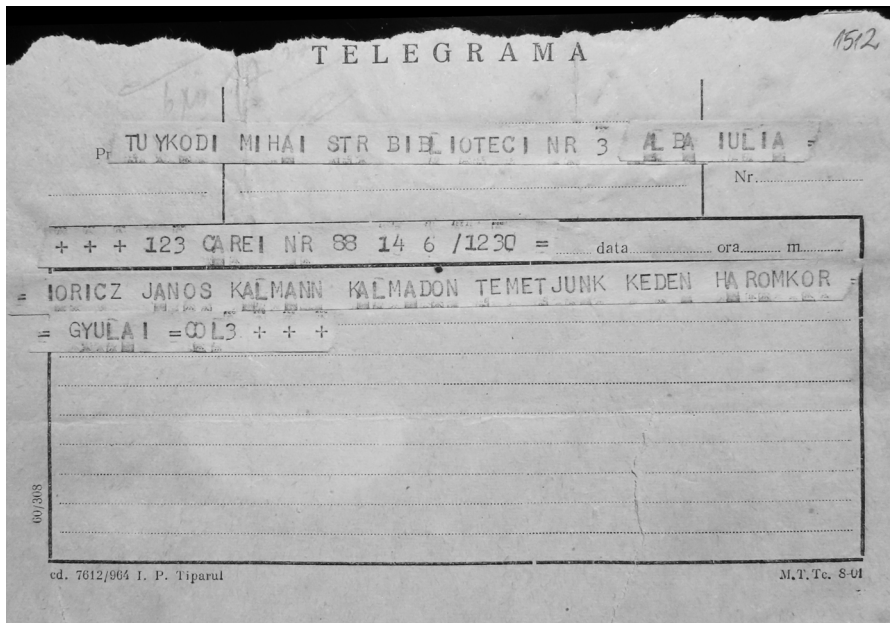 1512
TELEGRAMA
Pr TUYKODI MIHAI STR BIBLIOTECI NR 3 ALBA IULIA =
Nr.
+ + + 123 CAREI NR 88 14 6 /1230 = data ora m
= IORICZ JANOS KALMANN KALMADON TEMETJUNK KEDEN HAROMKOR =
= GYULAI =COL3 + + +
60/308
cd. 7612/964 I. P. Tiparul
M.T.Tc. 8-01